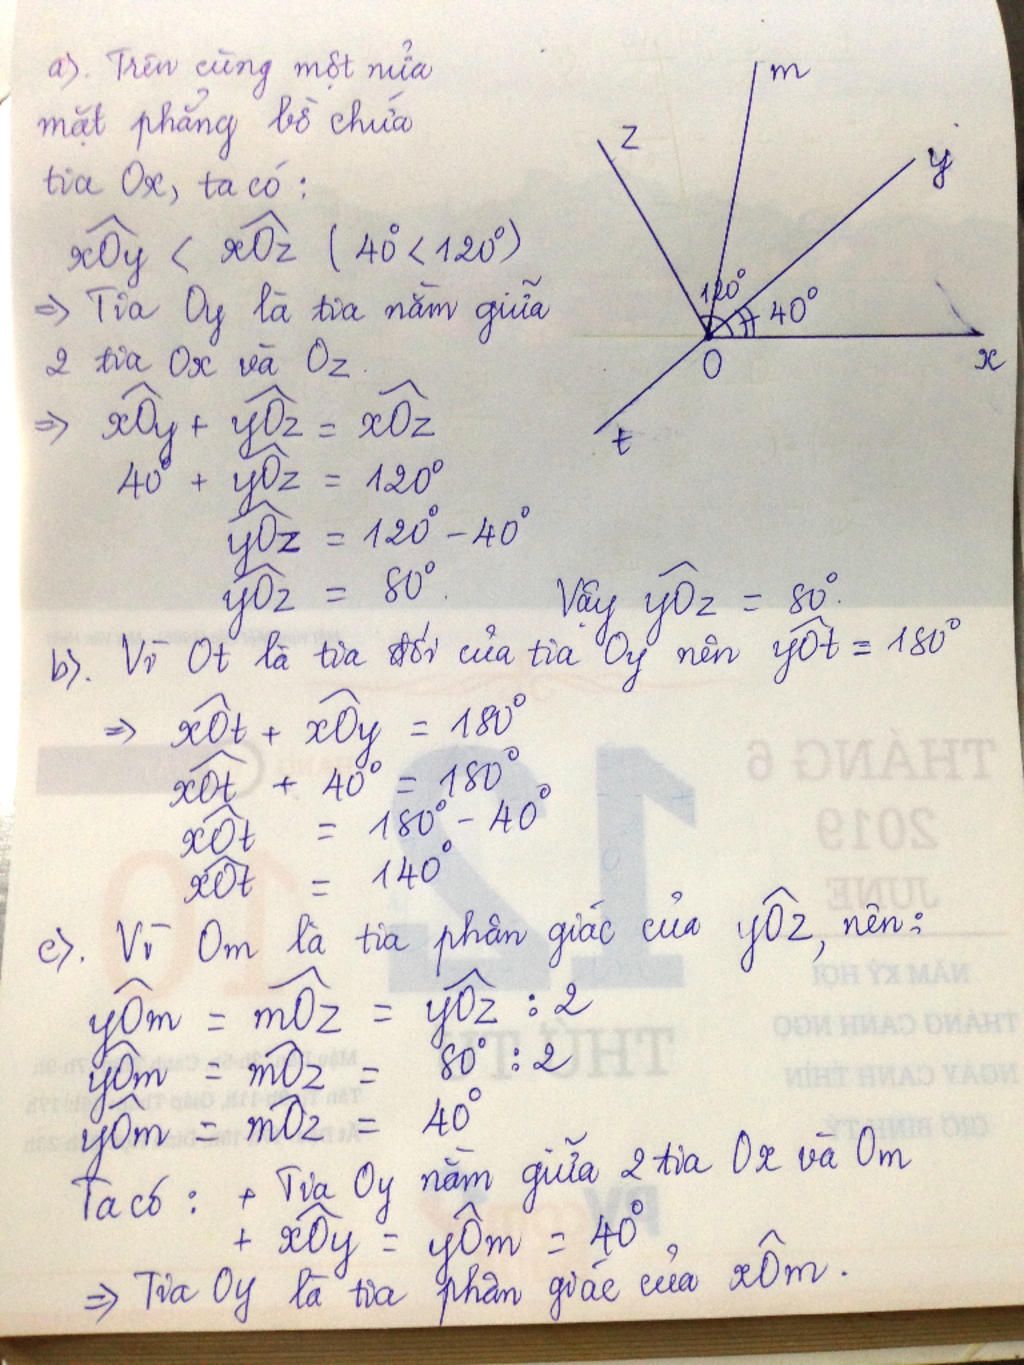 a). Trên cùng một nửa
mặt phẳng bờ chứa
tia Ox, ta có:
xÔy < xÔz (40° < 120°)
=> Tia Oy là tia nằm giữa
2 tia Ox và Oz.
=> xÔy + yÔz = xÔz
40° + yÔz = 120°
yÔz = 120° - 40°
yÔz = 80°. Vậy yÔz = 80°.
z
m
y
120°
40°
O
x
t
b). Vì Ot là tia đối của tia Oy nên yÔt = 180°
=> xÔt + xÔy = 180°
xÔt + 40° = 180°
xÔt = 180° - 40°
xÔt = 140°
c). Vì Om là tia phân giác của yÔz, nên:
yÔm = mÔz = yÔz : 2
yÔm = mÔz = 80° : 2
yÔm = mÔz = 40°
Ta có: + Tia Oy nằm giữa 2 tia Ox và Om
+ xÔy = yÔm = 40°
=> Tia Oy là tia phân giác của xÔm.
THÁNG 6
2019
JUNE
12
NĂM KỶ HỢI
THÁNG CANH NGỌ
NGÀY CANH THÌN
GIỜ BÍNH TÝ
THỨ TƯ
10